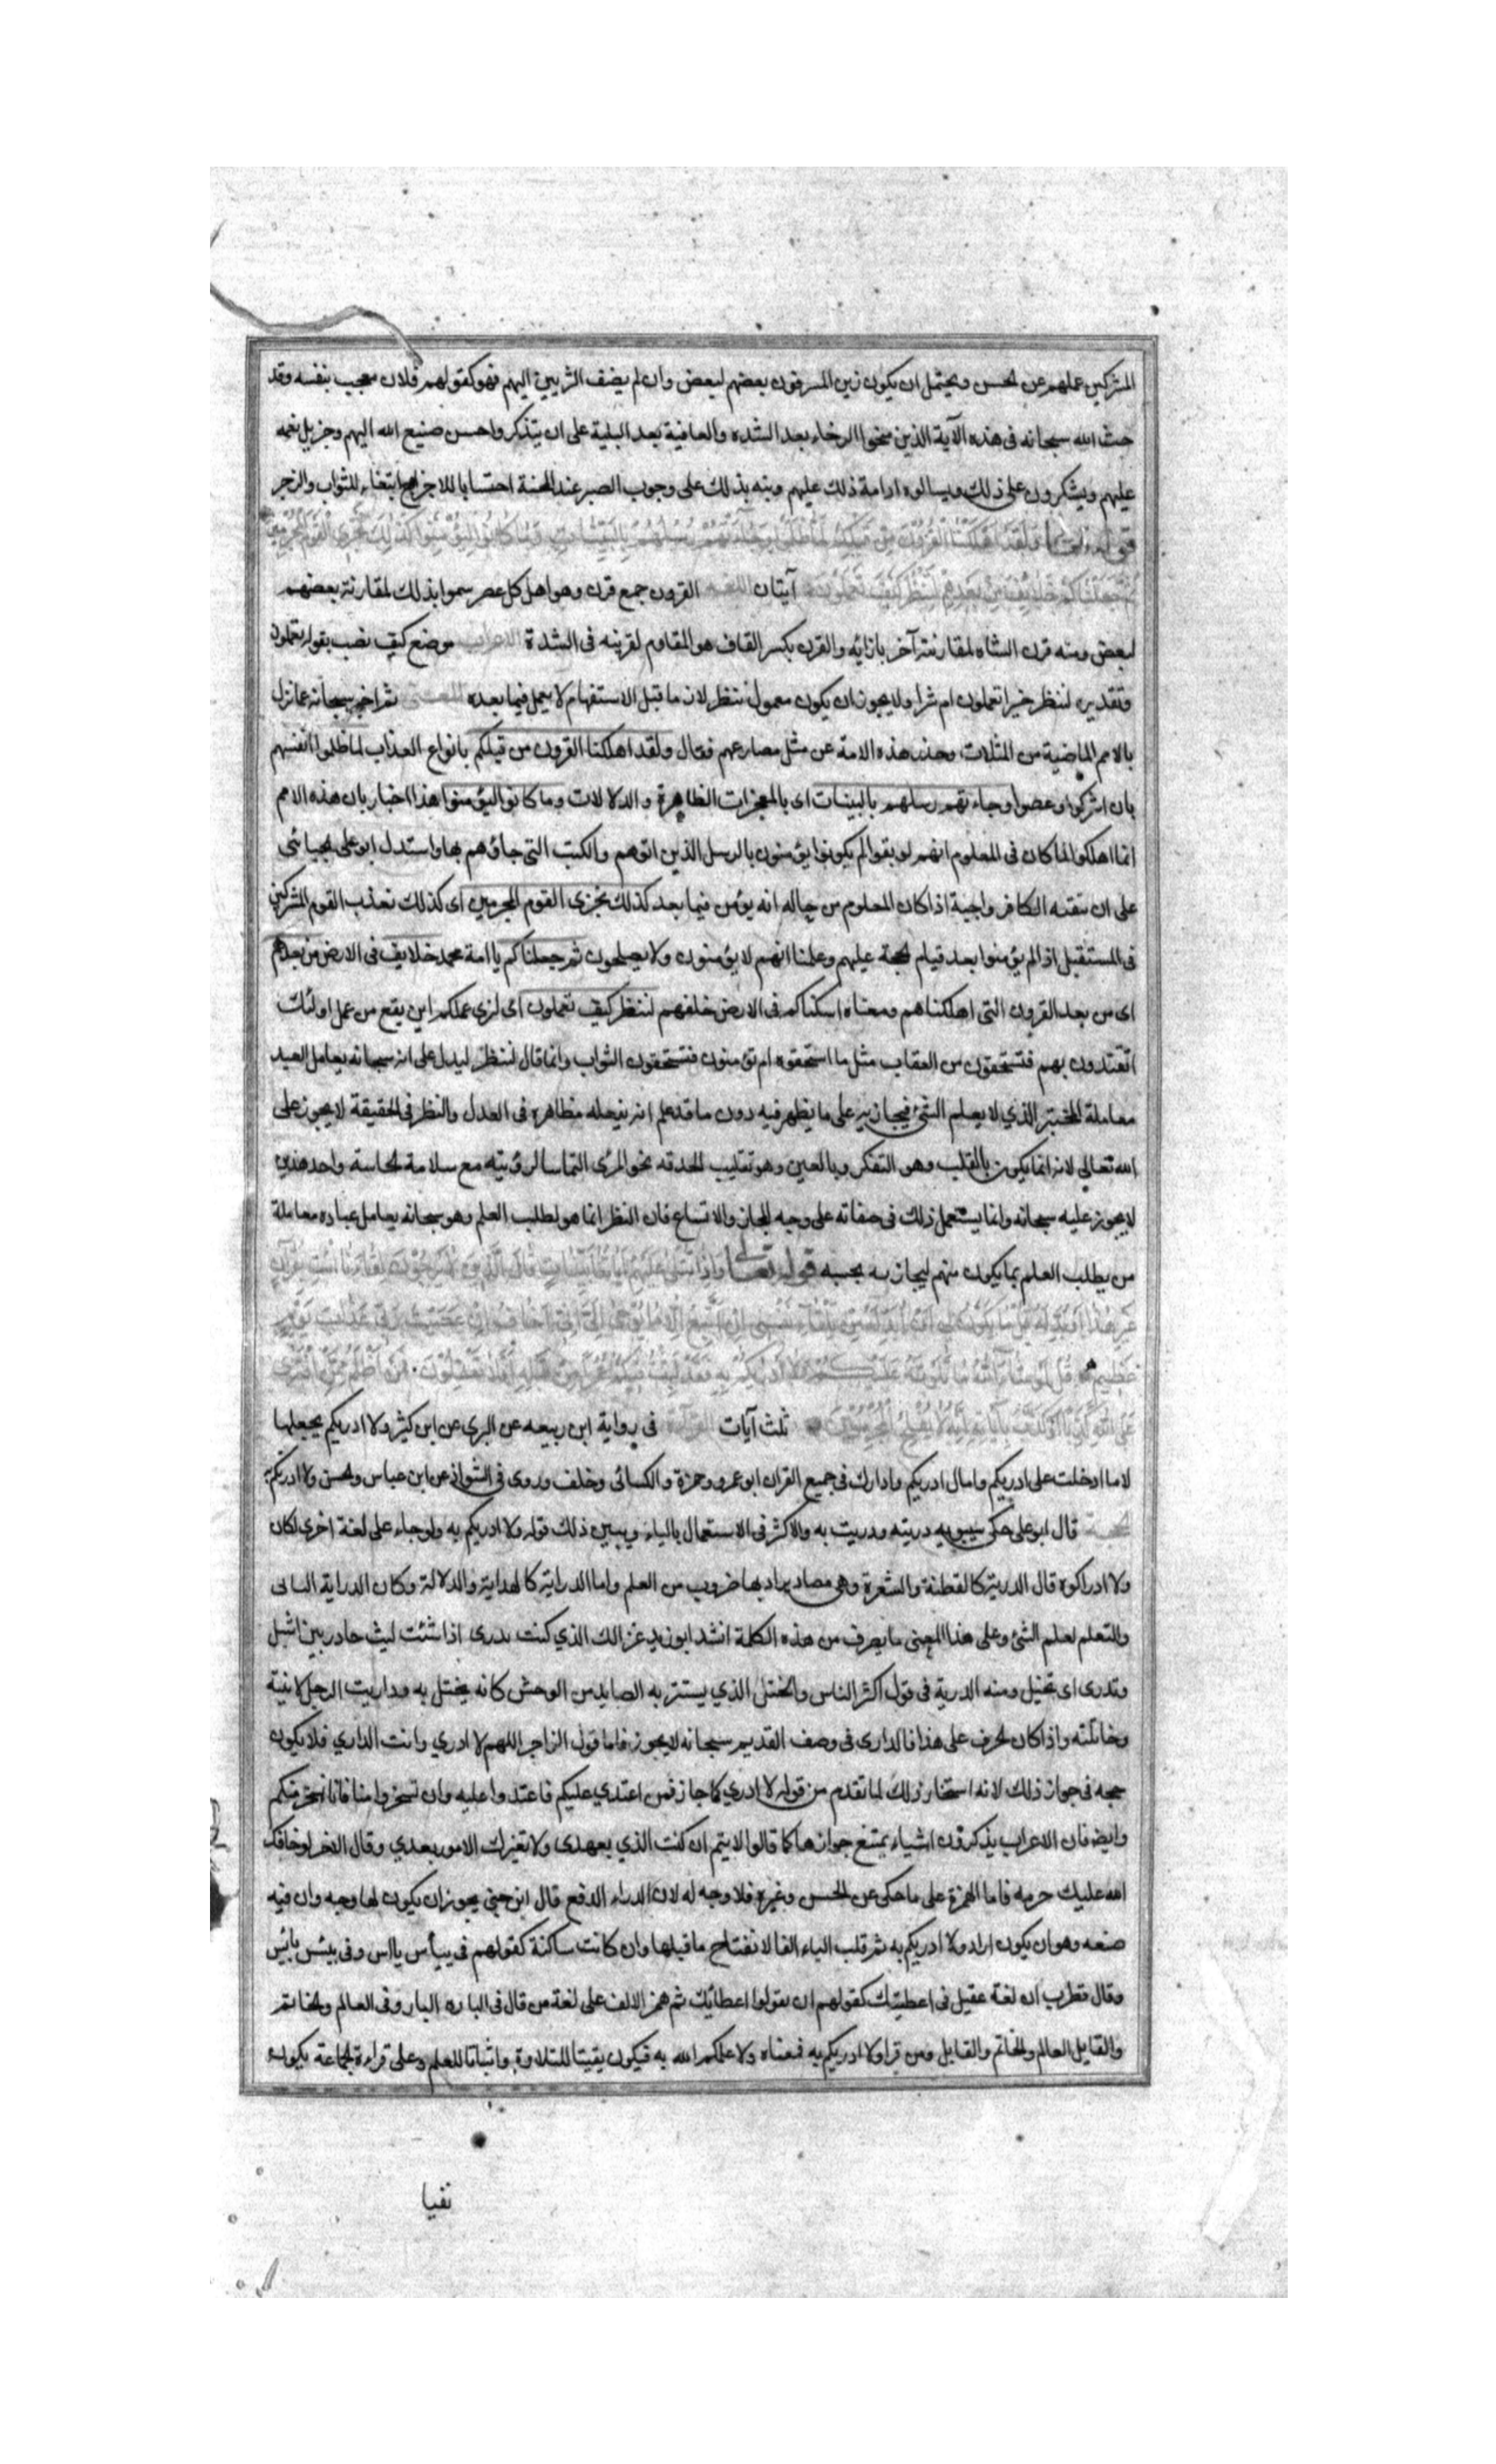 المشركين عملهم عن الحسن ويحتمل ان يكون زين المسرفون بعضهم لبعض وان لم يضف التزيين اليهم فهو كقولهم فلان معجب بنفسه وقد
حث الله سبحانه فى هذه الآية الذين منحوا الرخاء بعد الشدة والعافية بعد البلية على ان يتذكروا حسن صنيع الله اليهم وجزيل نعمه
عليهم ويشكروه على ذلك ويسالوه ادامة ذلك عليهم ونبه بذلك على وجوب الصبر عند المحنة احتسابا للاجر وابتغاء للثواب والزجر
قوله تعالى وَلَقَدْ اَهْلَكْنَا الْقُرُونَ مِنْ قَبْلِكُمْ لَمَّا ظَلَمُوا وَجَاءَتْهُمْ رُسُلُهُمْ بِالْبَيِّنَاتِ وَمَا كَانُوا لِيُؤْمِنُوا كَذَلِكَ نَجْزِي الْقَوْمَ الْمُجْرِمِينَ
ثُمَّ جَعَلْنَاكُمْ خَلَايِفَ مِنْ بَعْدِهِمْ لِنَنْظُرَ كَيْفَ تَعْمَلُونَ آيتان اللغة القرون جمع قرن وهو اهل كل عصر سموا بذلك لمقارنة بعضهم
لبعض ومنه قرن الشاه لمقارنته آخر بازائه والقرن بكسر القاف هو المقاوم لقرينه فى الشدة الاعراب موضع كيف نصب بقوله تعملون
وتقديره لننظر خيرا تعملون ام شرا ولا يجوز ان يكون معمول ننظر لان ما قبل الاستفهام لا يعمل فيما بعده المعنى ثم اخبر سبحانه عما نزل
بالامم الماضية من المثلات وحذر هذه الامة عن مثل مصارعهم فقال ولقد اهلكنا القرون من قبلكم بانواع العذاب لما ظلموا انفسهم
بان اشركوا وعصوا وجاءتهم رسلهم بالبينات اى بالمعجزات الظاهرة والدلالات وما كانوا ليؤمنوا هذا اخبار بان هذه الامم
انما اهلكوا لما كان فى المعلوم انهم لو بقوا لم يكونوا يؤمنون بالرسل الذين اتوهم والكتب التى جاؤهم بها واستدل ابو على الجبائى
على ان تبقية الكافر واجبة اذا كان المعلوم من حاله انه يؤمن فيما بعد كذلك نجزى القوم المجرمين اى كذلك نعذب القوم المشركين
فى المستقبل اذا لم يؤمنوا بعد قيام الحجة عليهم وعلمنا انهم لا يؤمنون ولا يصلحون ثم جعلناكم يا امة محمد خلايف فى الارض من بعدهم
اى من بعد القرون التى اهلكناهم ومعناه اسكناكم فى الارض خلفهم لننظر كيف تعملون اى لنرى عملكم اين يقع من عمل اولئك
اتقتدون بهم فتستحقون من العقاب مثل ما استحقوه ام تؤمنون فتستحقون الثواب وانما قال لننظر ليدل على انه سبحانه يعامل العبد
معاملة المختبر الذي لا يعلم الشئ فيجازيه على ما يظهر فيه دون ما قد علم انه يفعله مظاهرة فى العدل والنظر فى الحقيقة لا يجوز على
الله تعالى لانه انما يكون بالقلب وهو التفكر وبالعين وهو تقليب الحدقه نحو المرئ التماسا لرؤيته مع سلامة الحاسة واحد هذين
لا يجوز عليه سبحانه وانما يستعمل ذلك فى صفاته على وجه المجاز والاتساع فان النظر انما هو لطلب العلم وهو سبحانه يعامل عباده معاملة
من يطلب العلم بما يكون منهم ليجازيه بحسبه قوله تعالى وَاِذَا تُتْلَى عَلَيْهِمْ اَيَاتُنَا بَيِّنَاتٍ قَالَ الَّذِينَ لَا يَرْجُونَ لِقَاءَنَا ائْتِ بِقُرْآنٍ
غَيْرِ هَذَا اَوْ بَدِّلْهُ قُلْ مَا يَكُونُ لِي اَنْ اُبَدِّلَهُ مِنْ تِلْقَاءِ نَفْسِي اِنْ اَتَّبِعُ اِلَّا مَا يُوحَى اِلَيَّ اِنِّي اَخَافُ اِنْ عَصَيْتُ رَبِّي عَذَابَ يَوْمٍ
عَظِيمٍ قُلْ لَوْ شَاءَ اللهُ مَا تَلَوْتُهُ عَلَيْكُمْ وَلَا اَدْرَيكُمْ بِهِ فَقَدْ لَبِثْتُ فِيكُمْ عُمُرًا مِنْ قَبْلِهِ اَفَلَا تَعْقِلُونَ فَمَنْ اَظْلَمُ مِمَّنِ افْتَرَى
عَلَى اللهِ كَذِبًا اَوْ كَذَّبَ بِآيَاتِهِ اِنَّهُ لَا يُفْلِحُ الْمُجْرِمُونَ ثلث آيات القرآءة فى رواية ابن ربيعه عن البزى عن ابن كثير ولا ادريكم يجعلها
لاما ادخلت على ادريكم وامال ادريكم وادارك فى جميع القران ابو عمرو وحمزة والكسائى وخلف وروى فى الشواذ عن ابن عباس والحسن ولا ادريكم
الحجة قال ابو على حكى سيبويه دريته ودريت به والاكثر فى الاستعمال بالياء ويبين ذلك قوله ولا ادريكم به ولو جاء على لغة اخرى لكان
ولا ادراكوه قال الدرية كالفطنة والشعرة وهى مصادر يراد بها ضروب من العلم واما الدراية كالهداية والدلالة وكان الدراية التانى
والتعلم لعلم الشئ وعلى هذا المعنى ما يصرف من هذه الكلمة انشد ابو زيد غزالك الذي كنت تدرى اذا شئت ليث خادر بين اشبل
وتدرى اى تختل ومنه الدرية فى قول اكثر الناس والختل الذي يستتر به الصايد من الوحش كانه يختل به وداريت الرجل لاينته
وخاتلته واذا كان الحرف على هذا فالدارى فى وصف القديم سبحانه لا يجوز فاما قول الراجز اللهم لا ادري وانت الداري فلا يكون
حجه فى جواز ذلك لانه استجاز ذلك لما تقدم من قوله لا ادري كما جاز فمن اعتدي عليكم فاعتدوا عليه وان تسخروا منا فانا نسخر منكم
وايض فان الاعراب يذكرون اشياء يمتنع جوازها كما قالوا لايتم ان كنت الذي بعهدى ولا تغيرك الامور بعدي وقال الاخر لو خافك
الله عليك حرمه فاما الهمزة على ما حكى عن الحسن وغيره فلا وجه له لان الدراء الدفع قال ابن جني يجوز ان يكون لها وجه وان فيه
صنعه وهو ان يكون اراد ولا ادريكم به ثم قلب الياء الفا لانفتاح ما قبلها وان كانت ساكنة كقولهم فى ييأس ياس وفى ييبس يابس
وقال قطرب ان لغة عقيل فى اعطيتك كقولهم ان يقولوا اعطائيك ثم همز الالف على لغة من قال فى الباز الباز وفى العالم والخاتم
والقابل العالم والخاتم والقابل ومن قرا ولا ادريكم به فمعناه ولا علمكم الله به فيكون يقينا للتلاوة واثباتا للعلم وعلى قراءة الجماعة يكون
نفيا